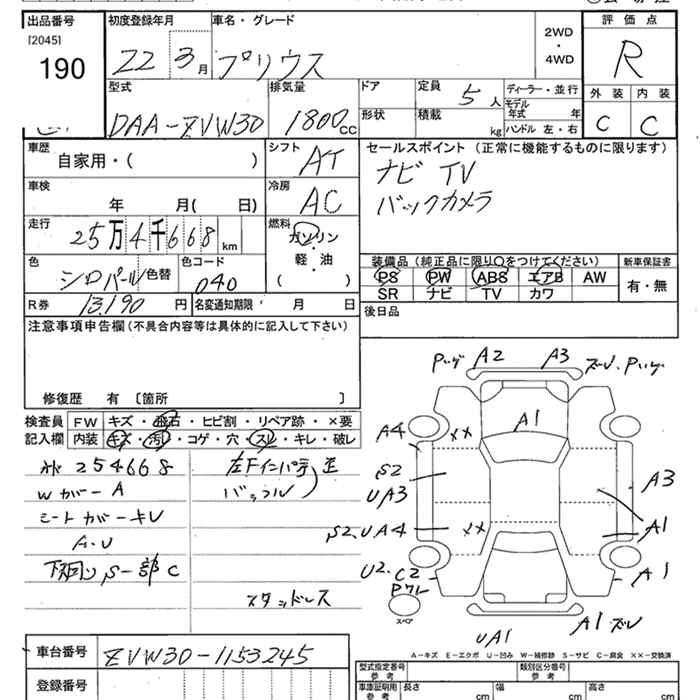 出品番号 初度登録年月 車名・グレード 2WD・4WD 評価点
[2045]
190 22 3月 プリウス R
型式 排気量 ドア 定員 5人 ディーラー・並行 外装 内装
DAA-ZVW30 1800cc 形状 積載 kg モデル年式 年式 ハンドル 左・右 C C
車歴 自家用・( ) シフト AT セールスポイント(正常に機能するものに限ります)
ナビ TV
車検 年 月( 日) 冷房 AC バックカメラ
走行 25万4千668km 燃料 ガソリン・軽・油 ( )
装備品(純正品に限り○をつけてください) 新車保証書
色 シロパール 色替 色コード 040 PS PW ABS エアB AW 有・無
SR ナビ TV カワ
R券 13,190円 名変通知期限 月 日 後日品
注意事項申告欄(不具合内容等は具体的に記入して下さい)
修復歴 有 〔箇所 〕
A2 A3
A1
検査員 FW キズ・飛石・ヒビ割・リペア跡・×要
記入欄 内装 キズ・汚レ・コゲ・穴・スレ・キレ・破レ
A4 ××
254668 左Fインパテ
Wカバー A バックル
シートカバーキレ
S2 UA3 A3
S2.UA4 ×× A1
下廻り S一部C
U2.C2 A1
スタッドレス
スペア
UA1 A1 ズレ
A-キズ E-エクボ U-凹み W-補修跡 S-サビ C-腐食 ××-交換済
車台番号 ZVW30-1153245
登録番号
型式指定番号 参考 類別区分番号 参考
車庫証明用 参考 長さ cm 幅 cm 高さ cm